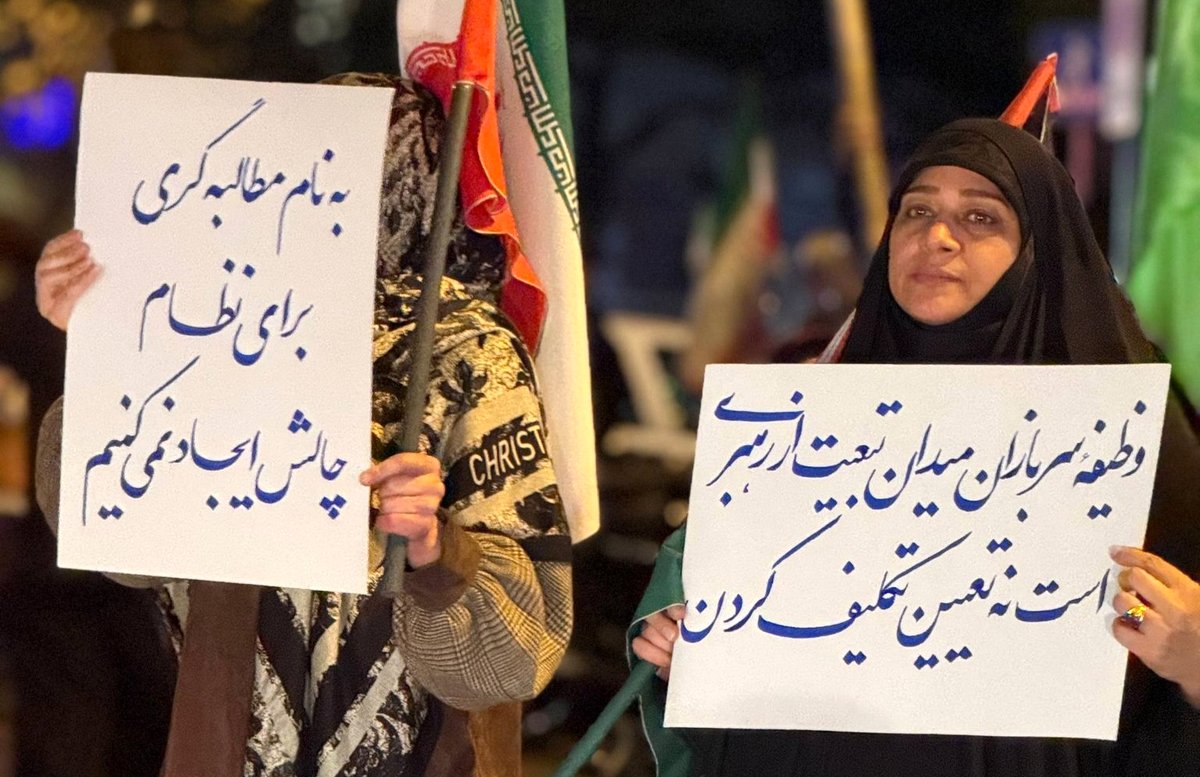 به نام مطالبه گری
برای نظام
چالش ایجاد نمی کنیم
CHRIST
وظیفهٔ سربازان میدان تبعیت از رهبری
است نه تعیین تکلیف کردن